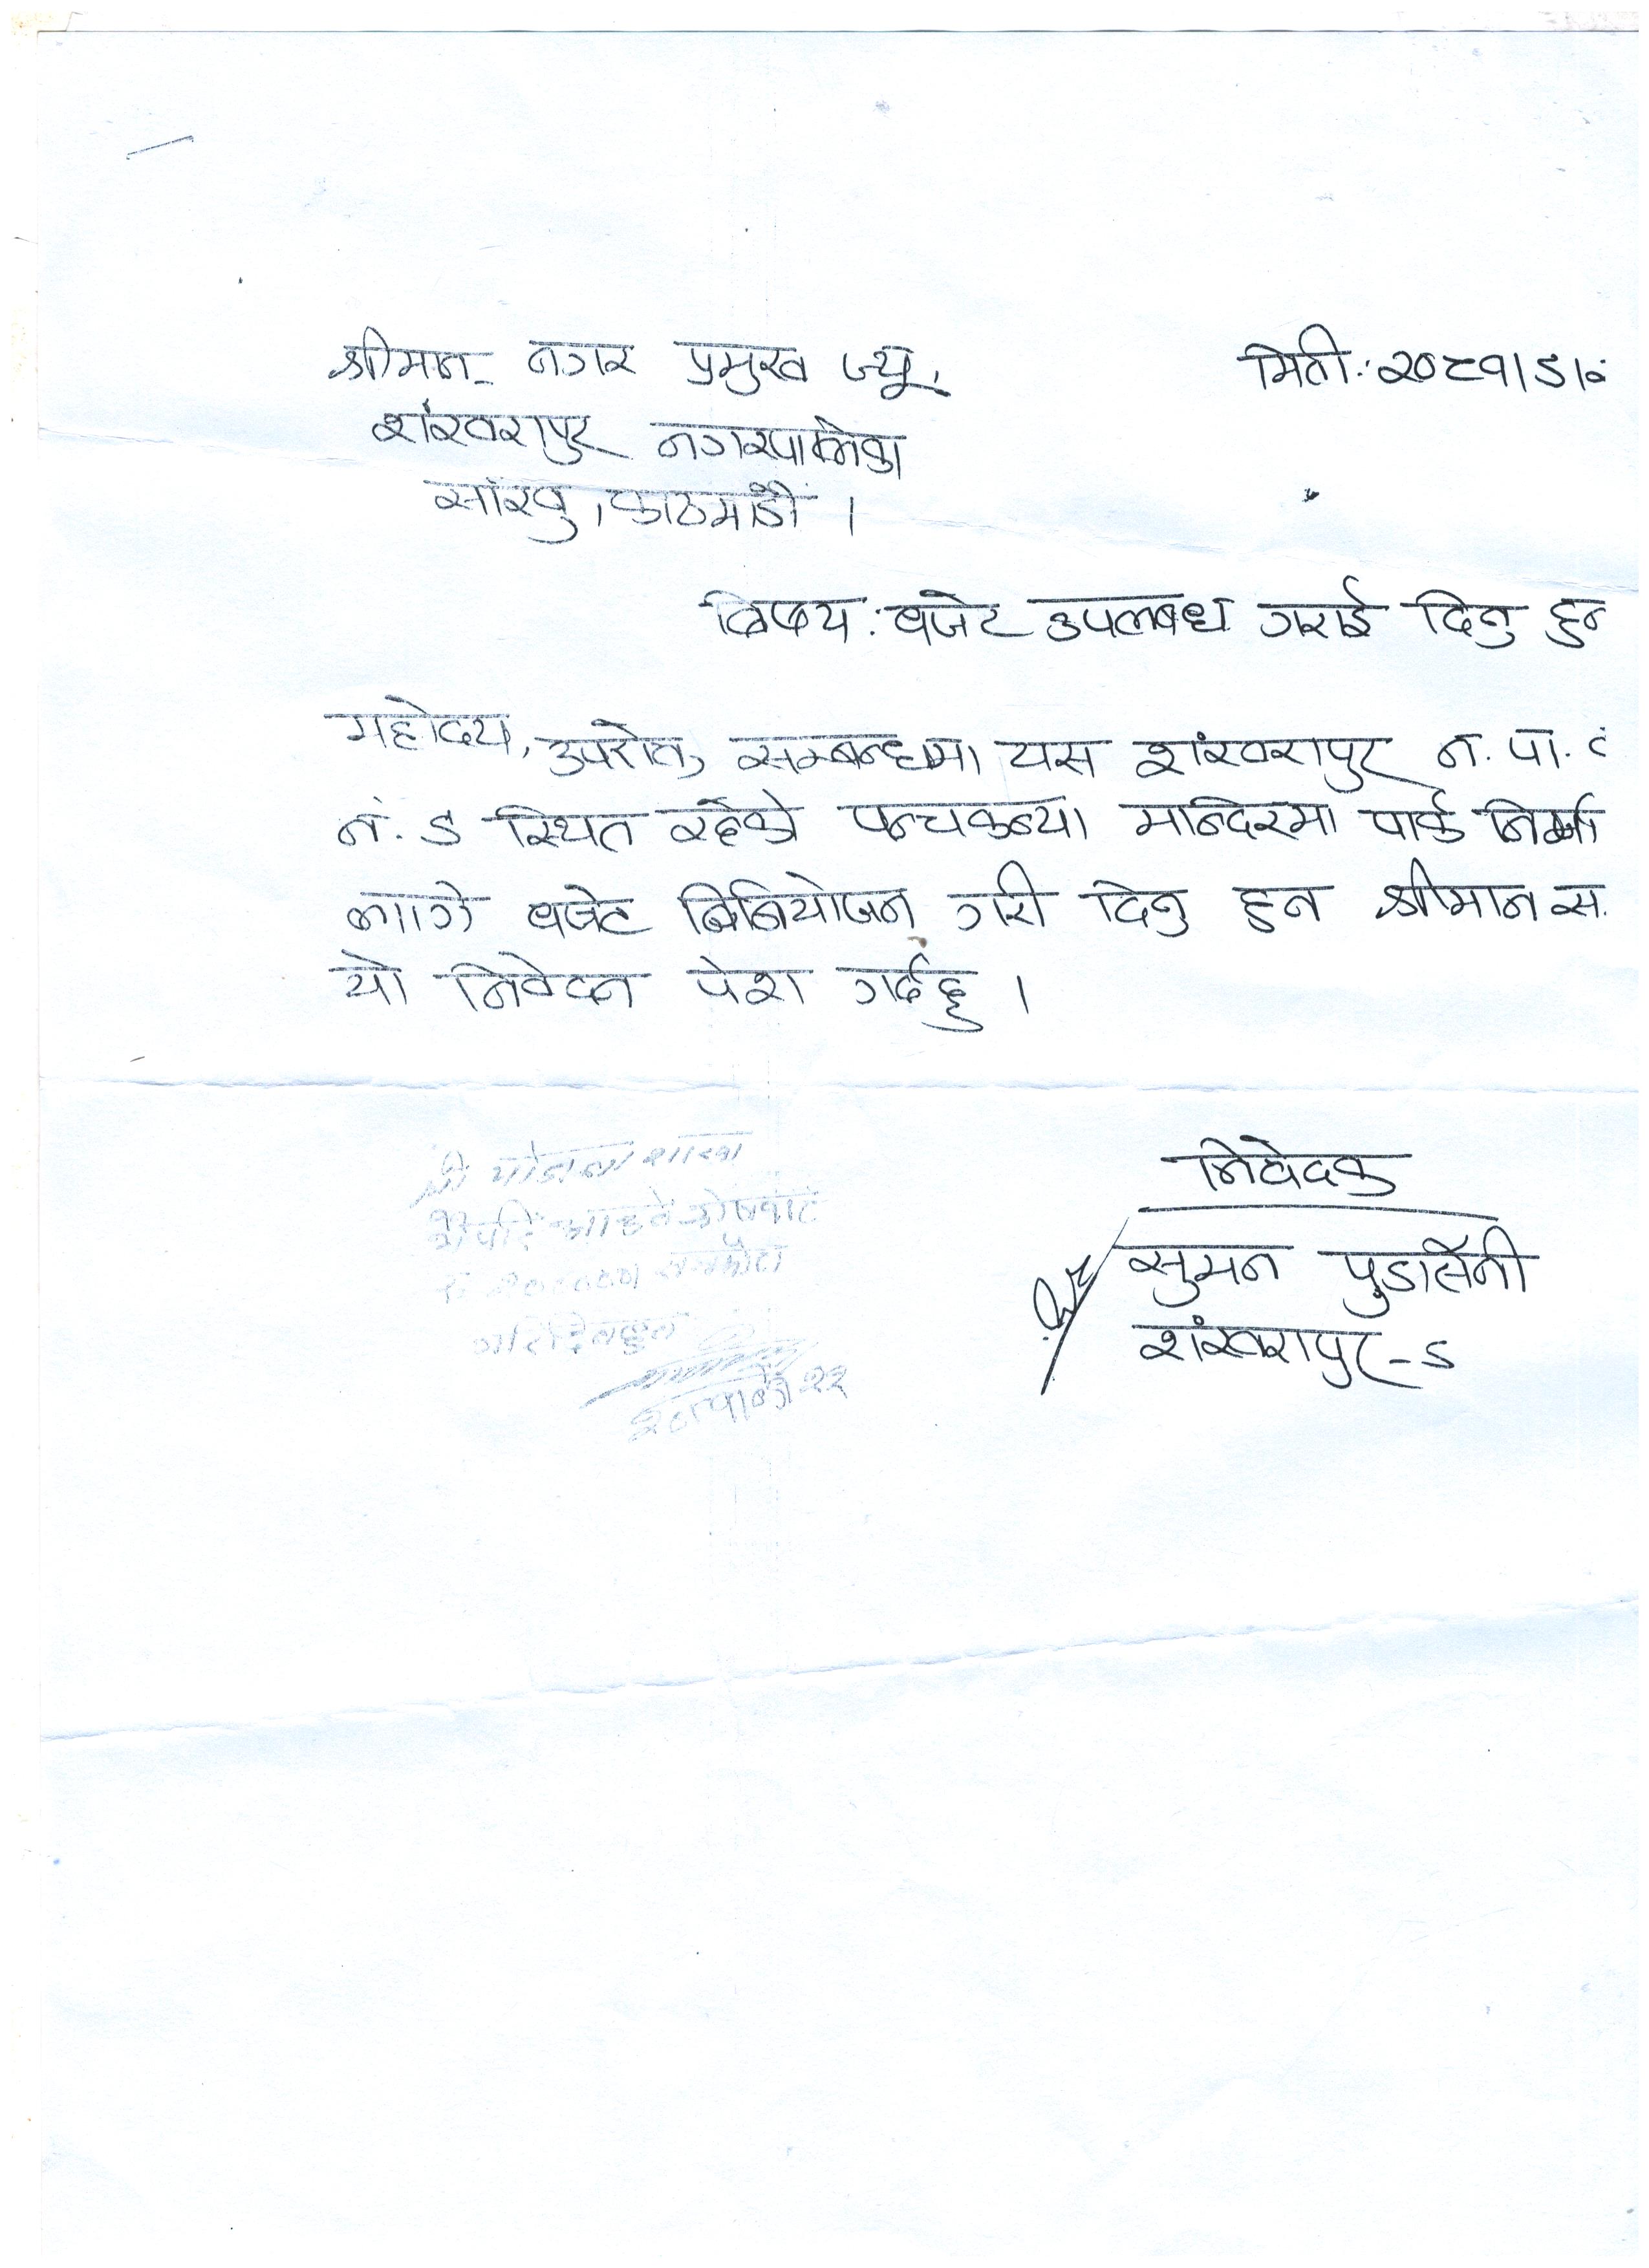 श्रीमान नगर प्रमुख ज्यू, मिती: २०८१।५।
शंखरापुर नगरपालिका
सांखु, काठमाडौं ।
विषय: बजेट उपलब्ध गराई दिनु हुन
महोदय, उपरोक्त सम्बन्धमा यस शंखरापुर न. पा.
नं. ५ स्थित रहेको पन्चकन्या मान्दिरमा पार्क निर्मा
लागि बजेट बिनियोजन गरी दिनु हुन श्रीमान स
यो निवेदन पेश गर्दछु ।
निवेदक
सुमन पुडासैनी
शंखरापुर-५
श्री योजना शाखा